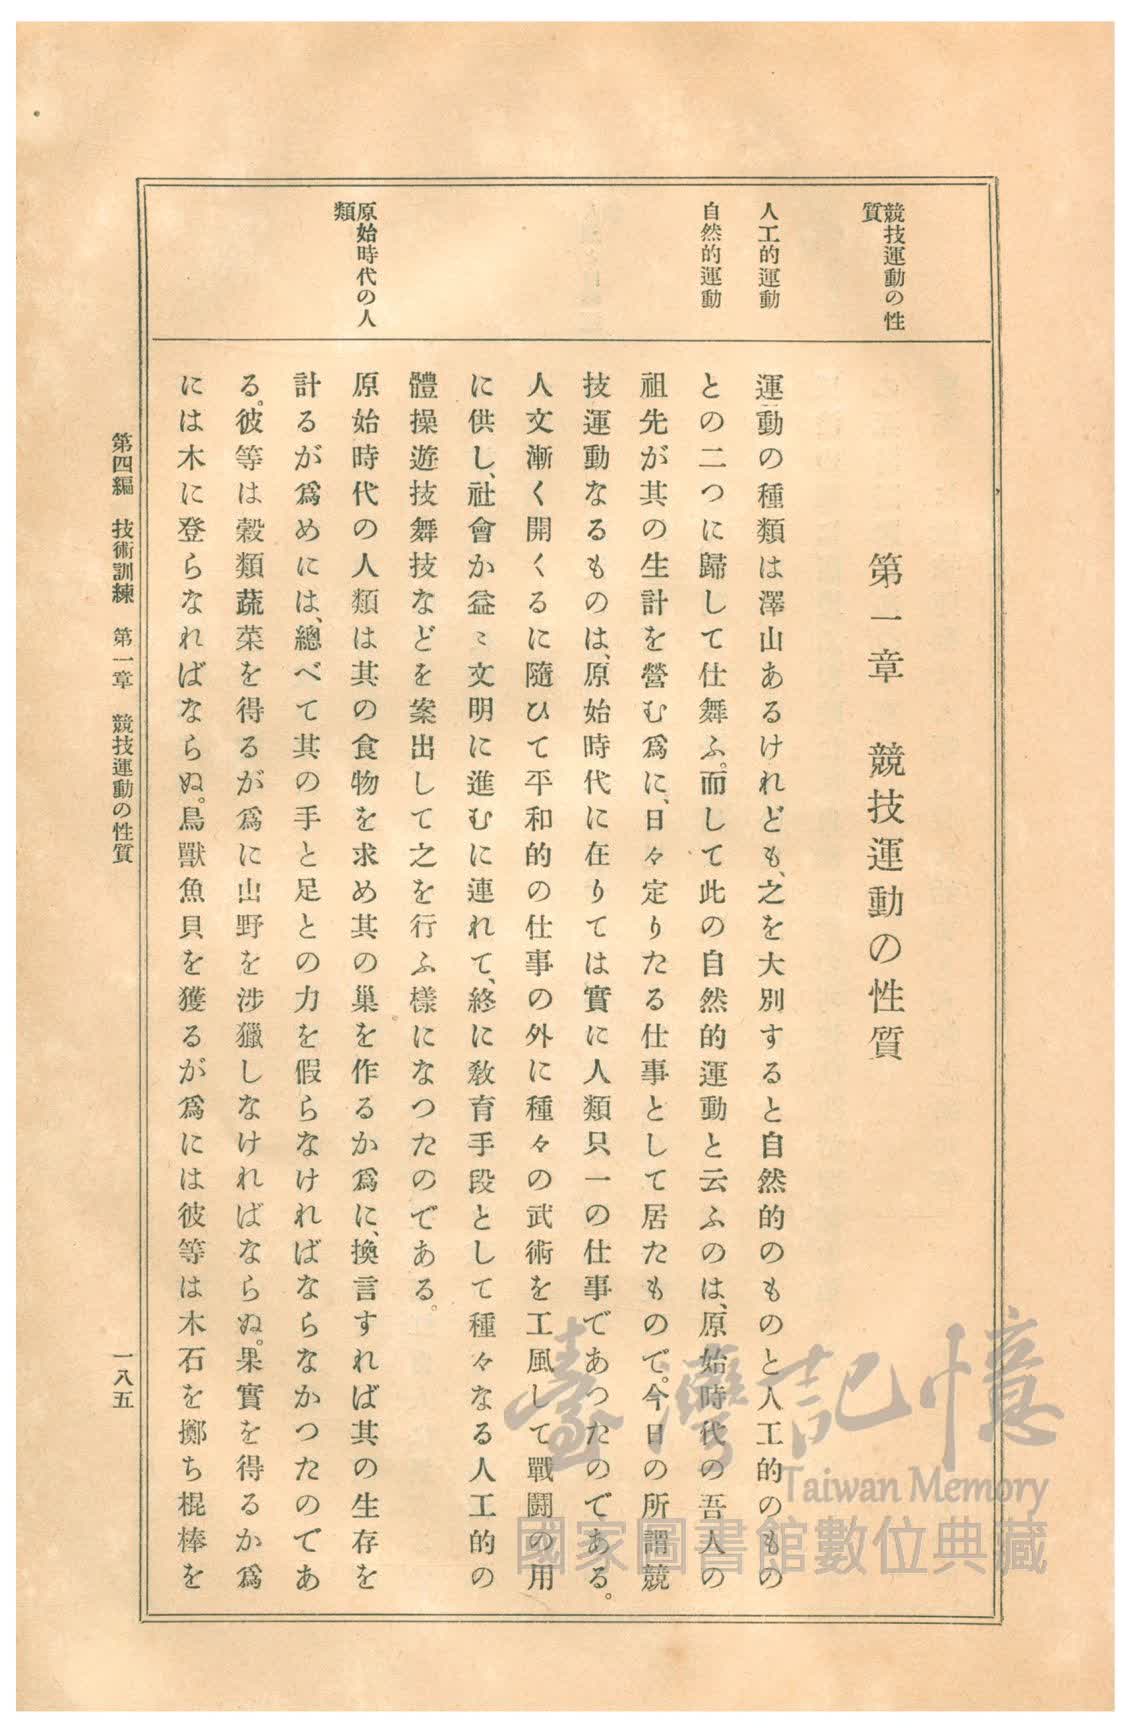 競技運動の性
質
人工的運動
自然的運動
原始時代の人
類
第一章　競技運動の性質
運動の種類は澤山あるけれども、之を大別すると自然的のものと人工的のもの
との二つに歸して仕舞ふ。而して此の自然的運動と云ふのは、原始時代の吾人の
祖先が其の生計を營む爲に、日々定りたる仕事として居たもので。今日の所謂競
技運動なるものは、原始時代に在りては實に人類只一の仕事であつたのである。
人文漸く開くるに隨ひて平和的の仕事の外に種々の武術を工風して戰鬪の用
に供し、社會か益〻文明に進むに連れて、終に敎育手段として種々なる人工的の
體操遊技舞技などを案出して之を行ふ樣になつたのである。
原始時代の人類は其の食物を求め其の巢を作るか爲に、換言すれば其の生存を
計るが爲めには、總べて其の手と足との力を假らなければならなかつたのであ
る。彼等は穀類蔬菜を得るが爲に山野を涉獵しなければならぬ。果實を得るか爲
には木に登らなればならぬ。鳥獸魚貝を獲るが爲には彼等は木石を擲ち棍棒を
第四編　技術訓練　第一章　競技運動の性質
一八五
臺灣記憶
Taiwan Memory
國家圖書館數位典藏